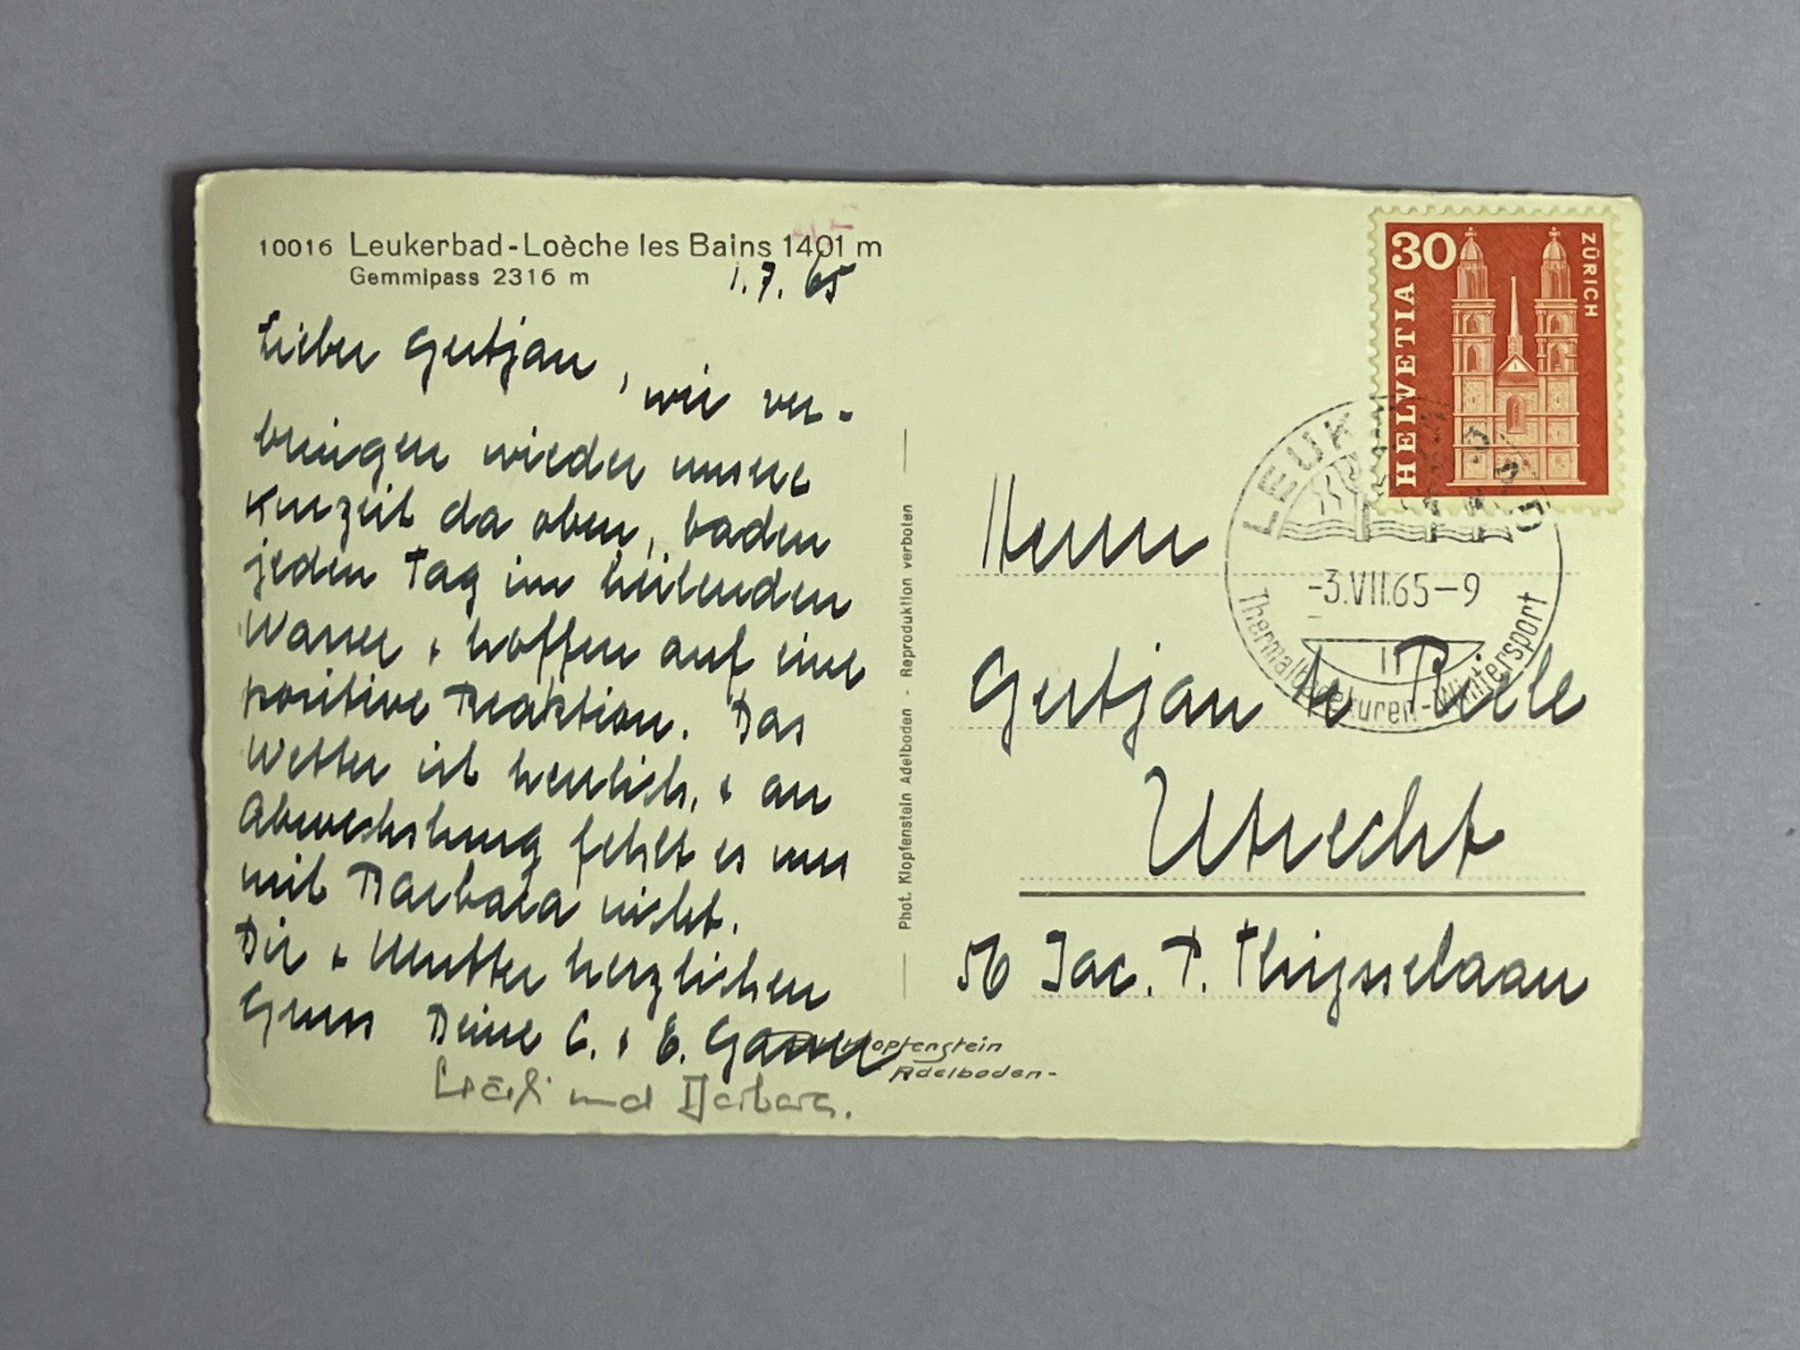 10016 Leukerbad-Loèche les Bains 1401 m
Gemmipass 2316 m
1.7.65
Lieber Gertjan, wir ver-
bringen wieder unsere
Kurzeit da oben, baden
jeden Tag im heilenden
Wasser + hoffen auf eine
positive Reaktion. Das
Wetter ist herrlich, + an
Abwechslung fehlt es uns
mit Barbara nicht.
Dir + Mutter herzlichen
Gruss Deine C. + E.
und Barbara.
Phot. Klopfenstein Adelboden - Reproduktion verboten
Klopfenstein
Adelboden-
30
HELVETIA
ZÜRICH
-3.VII.65-9
Thermalbadekuren-Wintersport
Herrn
Gertjan te Riele
Utrecht
56 Jac. P. Thijsselaan